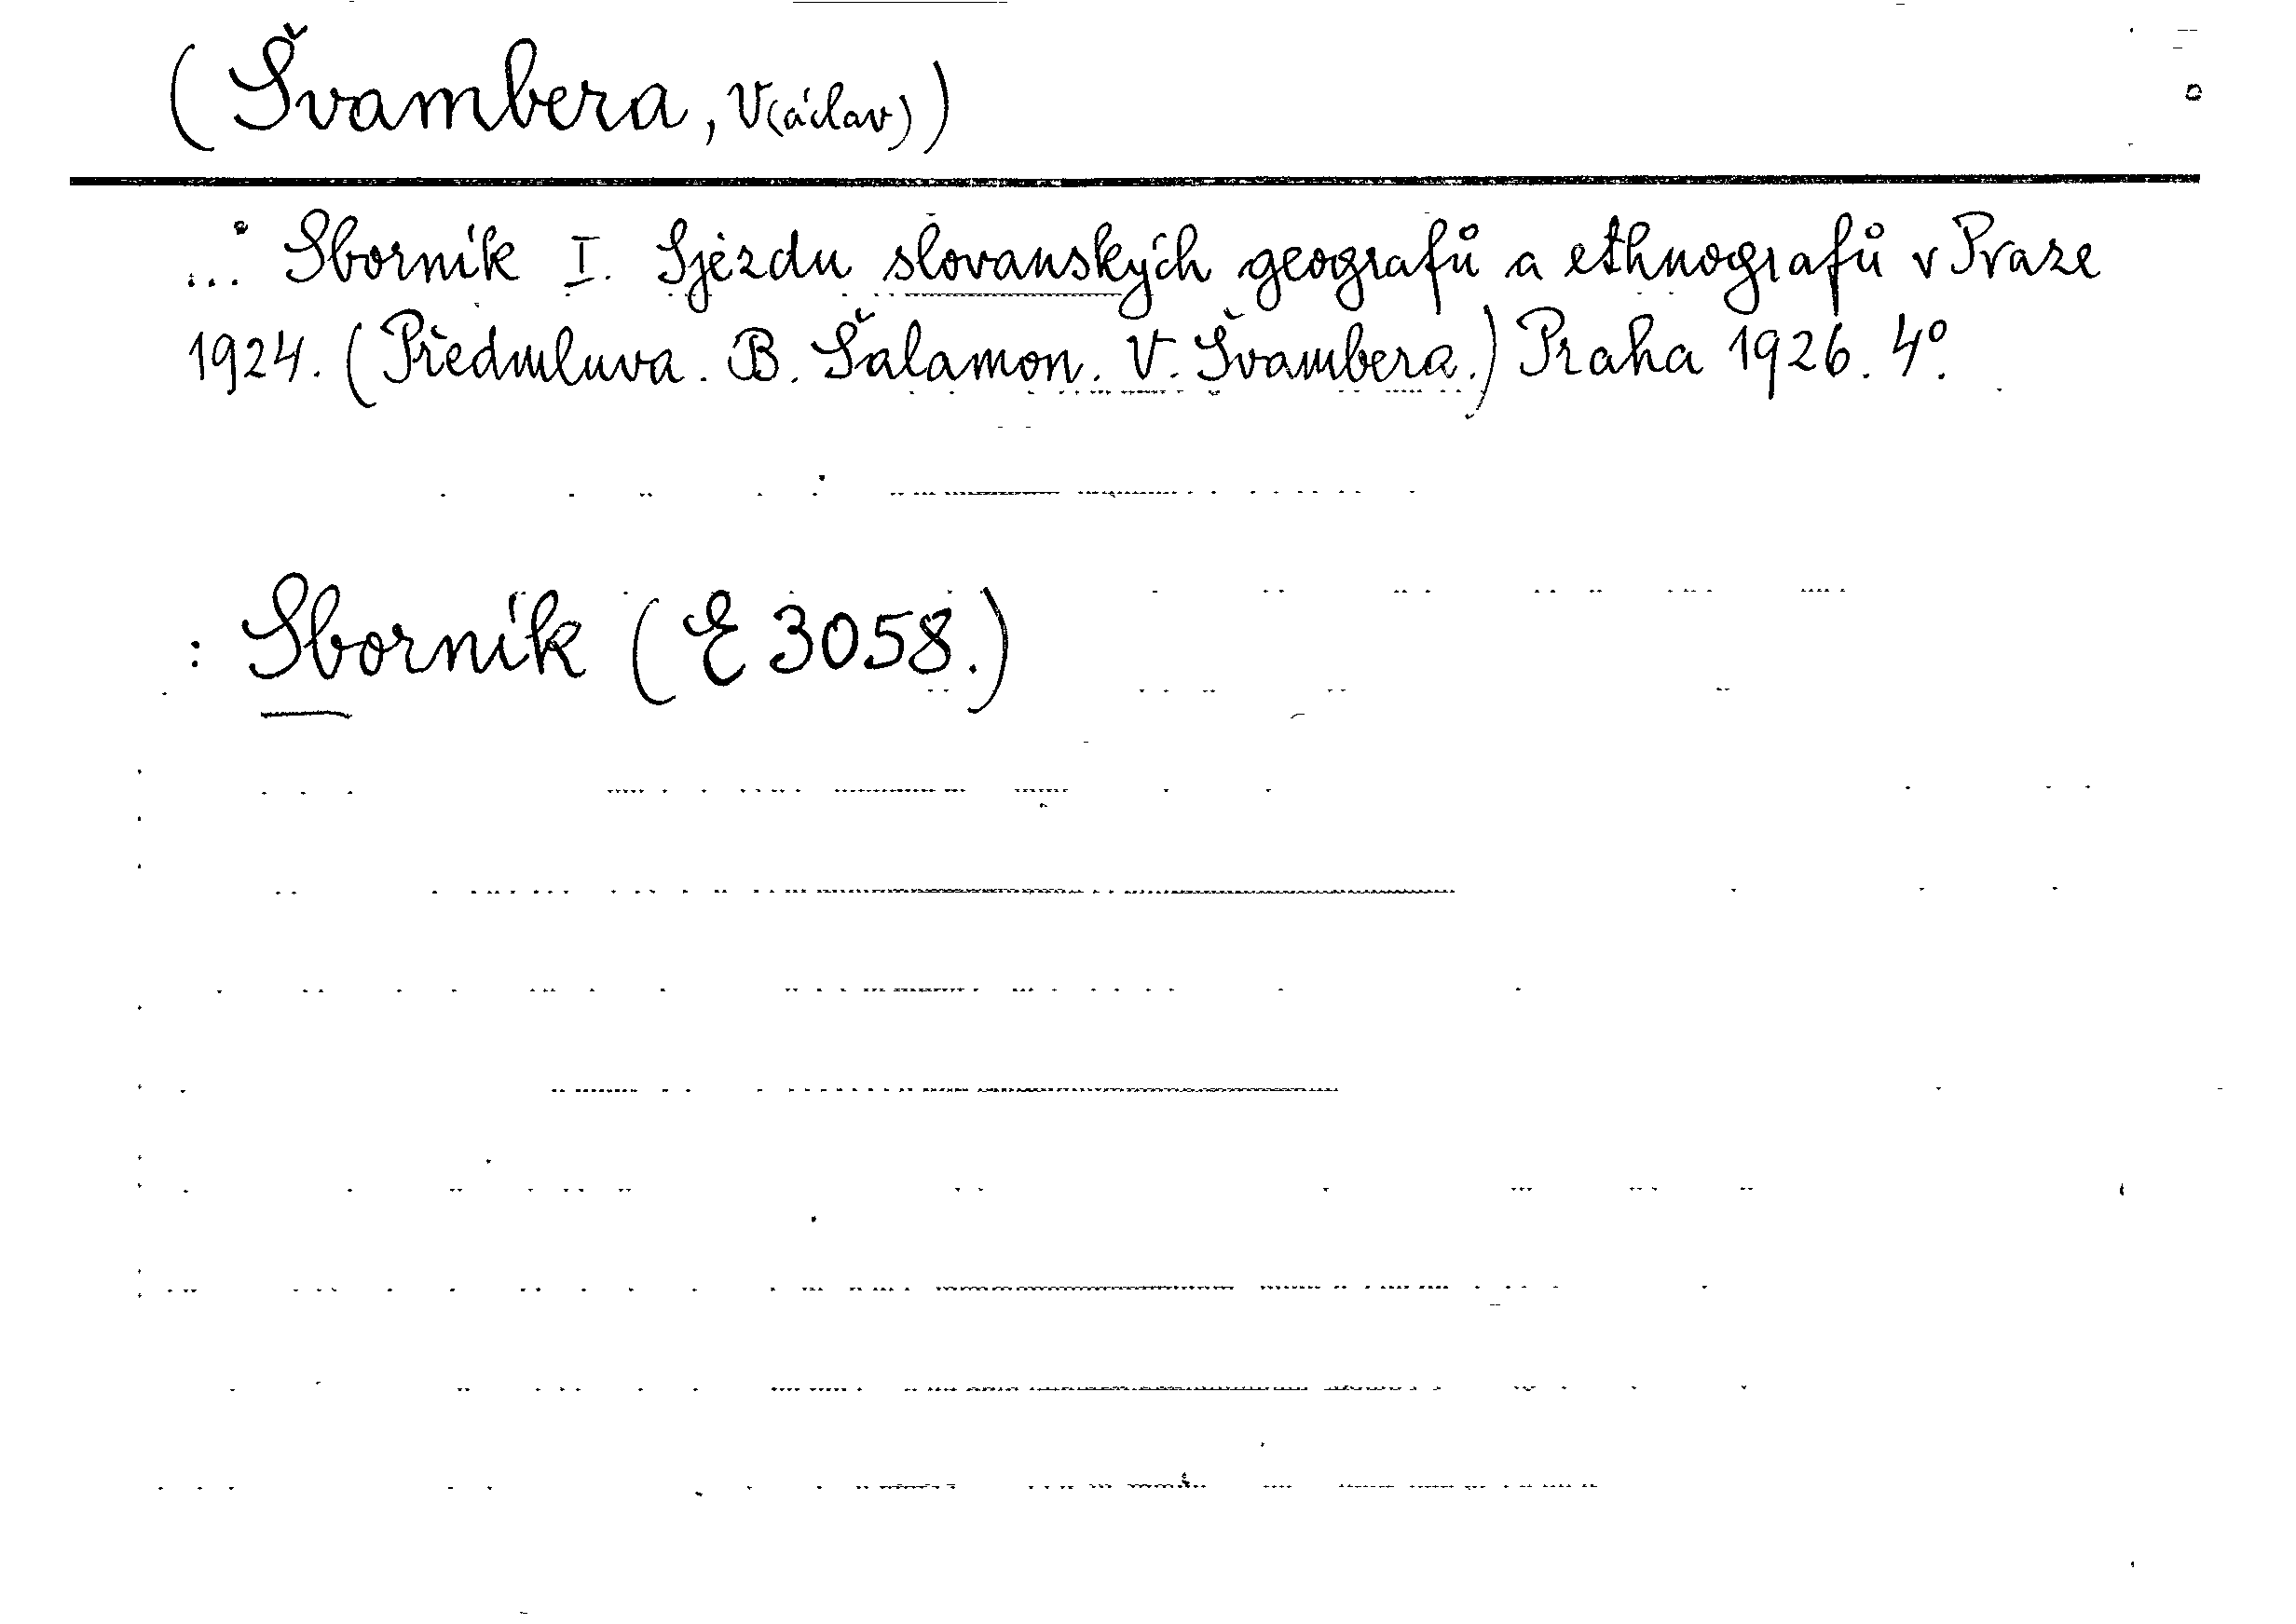 (Švambera, V(áclav))
... Sborník I. Sjezdu slovanských geografů a ethnografů v Praze
1924. (Předmluva. B. Šalamon. V. Švambera.) Praha 1926. 4º.
: Sborník (E 3058.)